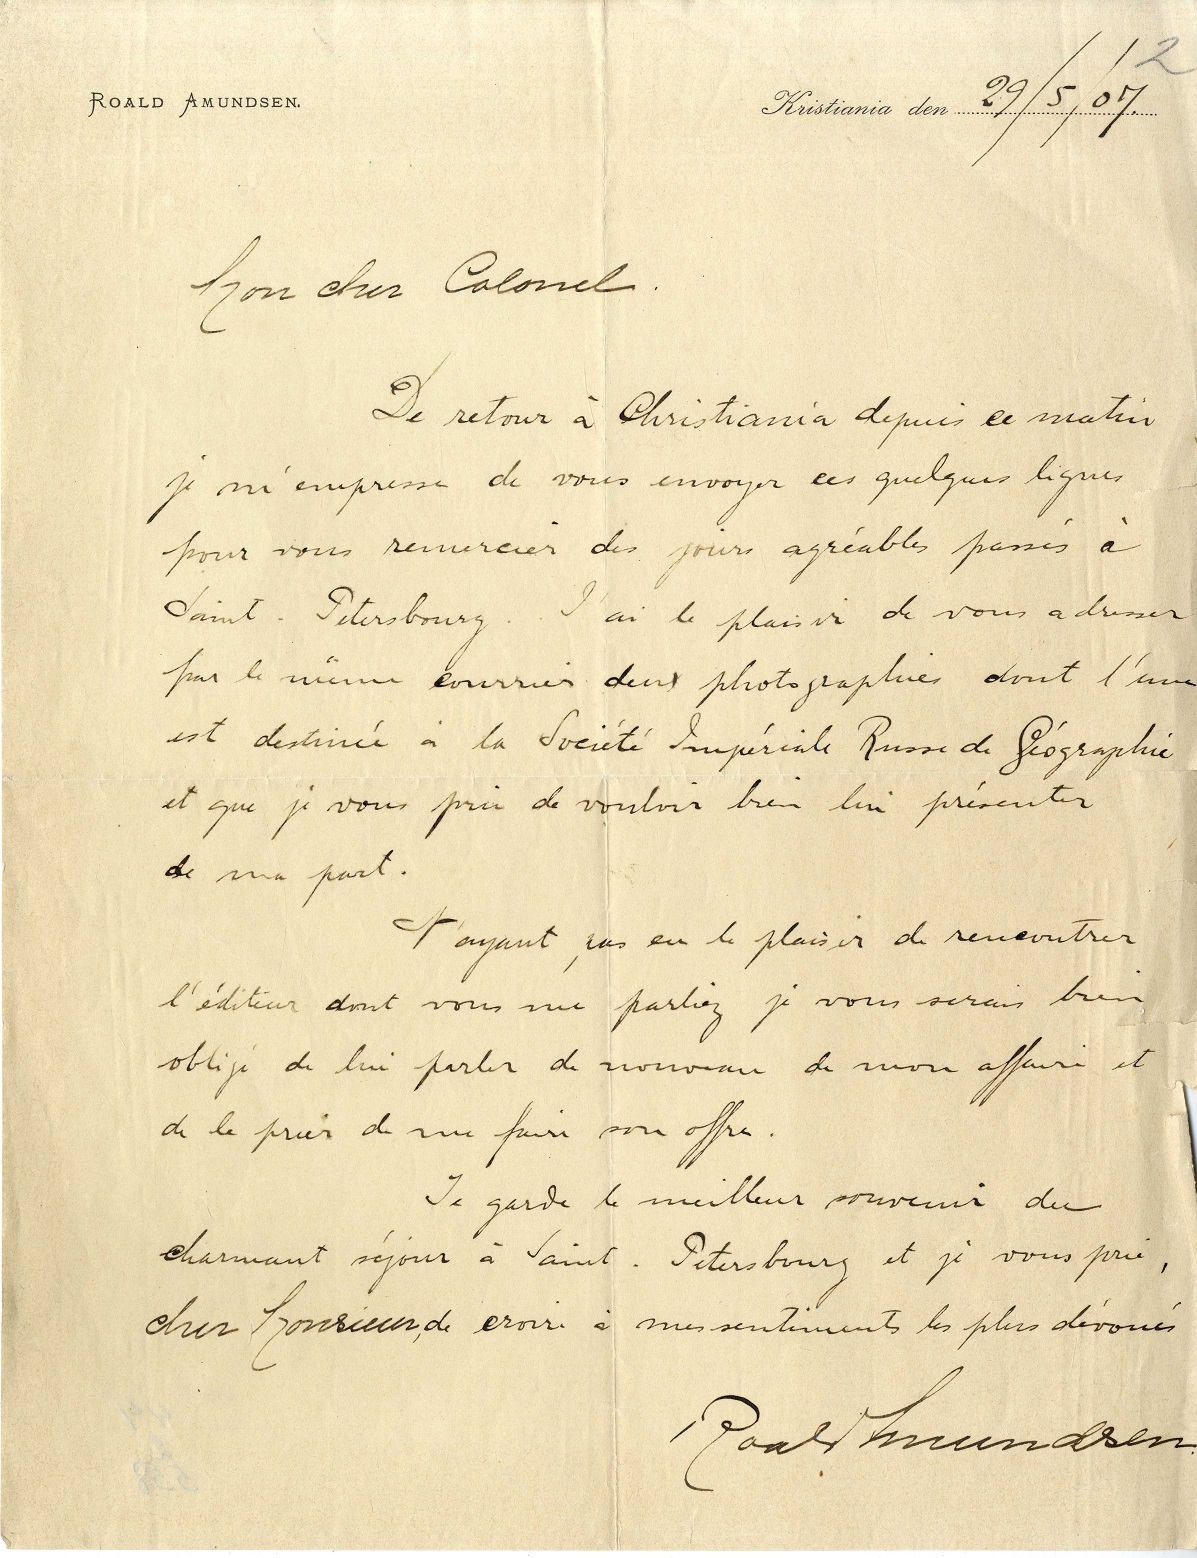 2
ROALD AMUNDSEN.
Kristiania den 29/5/07.
Mon cher Colonel.
De retour à Christiania depuis ce matin
je m'empresse de vous envoyer ces quelques lignes
pour vous remercier des jours agréables passés à
Saint-Pétersbourg. J'ai le plaisir de vous adresser
par le même courrier deux photographies dont l'une
est destinée à la Société Impériale Russe de Géographie
et que je vous prie de vouloir bien lui présenter
de ma part.
N'ayant pas eu le plaisir de rencontrer
l'éditeur dont vous me parliez je vous serais bien
obligé de lui parler de nouveau de mon affaire et
de le prier de me faire son offre.
Je garde le meilleur souvenir du
charmant séjour à Saint-Pétersbourg et je vous prie,
cher Monsieur, de croire à mes sentiments les plus dévoués
Roald Amundsen.